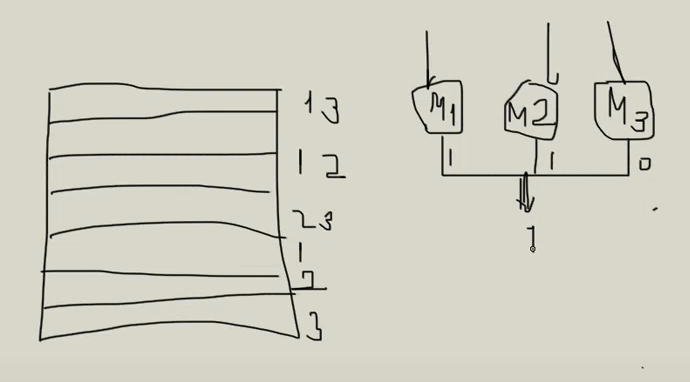 1 3
1 2
2 3
1
2
3
M1 M2 M3
1 1 0
1